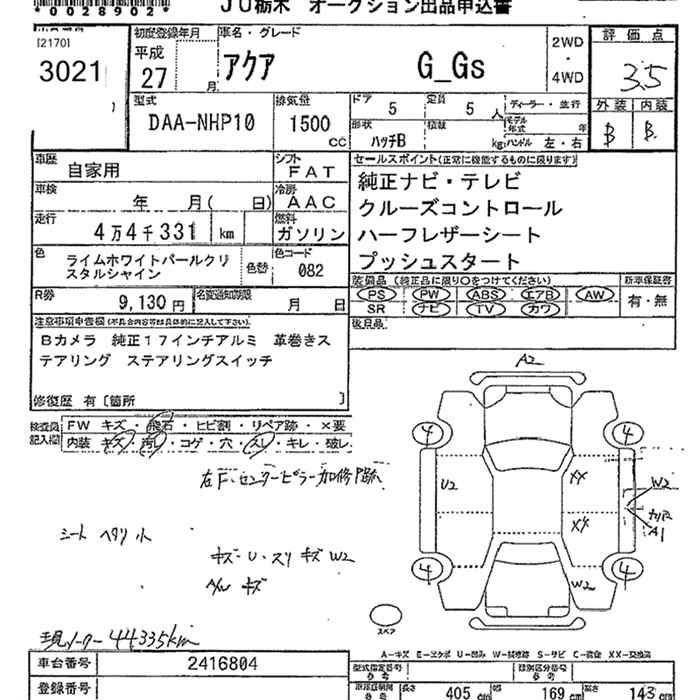 00289029
JU栃木 オークション出品申込書
[2170]
3021
初度登録年月
平成
27
月
車名・グレード
アクア G_Gs
2WD
・
4WD
評価点
3.5
外装 内装
B B
型式
DAA-NHP10
排気量
1500
CC
ドア 5
定員 5 人
形状 ハッチB
積載 kg
ディーラー・並行
モデル年式 年
ハンドル 左・右
車歴 自家用
シフト FAT
車検 年 月( 日)
冷房 AAC
走行 4万4千331 km
燃料 ガソリン
色 ライムホワイトパールクリスタルシャイン
色替
色コード 082
R券 9,130円
名変通知期限 月 日
セールスポイント(正常に機能するものに限ります)
純正ナビ・テレビ
クルーズコントロール
ハーフレザーシート
プッシュスタート
装備品 (純正品に限り○をつけてください)
PS PW ABS エアB AW
SR ナビ TV カワ
新車保証書
有・無
後日品
注意事項申告欄(不具合内容等は具体的に記入して下さい)
Bカメラ 純正17インチアルミ 革巻きス
テアリング ステアリングスイッチ
修復歴 有〔箇所 〕
検査員記入欄
FW キズ・飛石・ヒビ割・リペア跡・×要
内装 キズ・汚レ・コゲ・穴・スレ・キレ・破レ
左F・センターピラー加修跡
シート ヘタリ小
キズ・U・スリキズW2
A/W キズ
現メーター 44335km
A2
4
4
U2
XX
XX
W2
A1
W2
4
4
スペア
A-キズ E-エクボ U-凹み W-補修跡 S-サビ C-腐食 XX-交換済
車台番号 2416804
登録番号
型式指定番号
類別区分番号
長さ 405 cm
幅 169 cm
高さ 145 cm